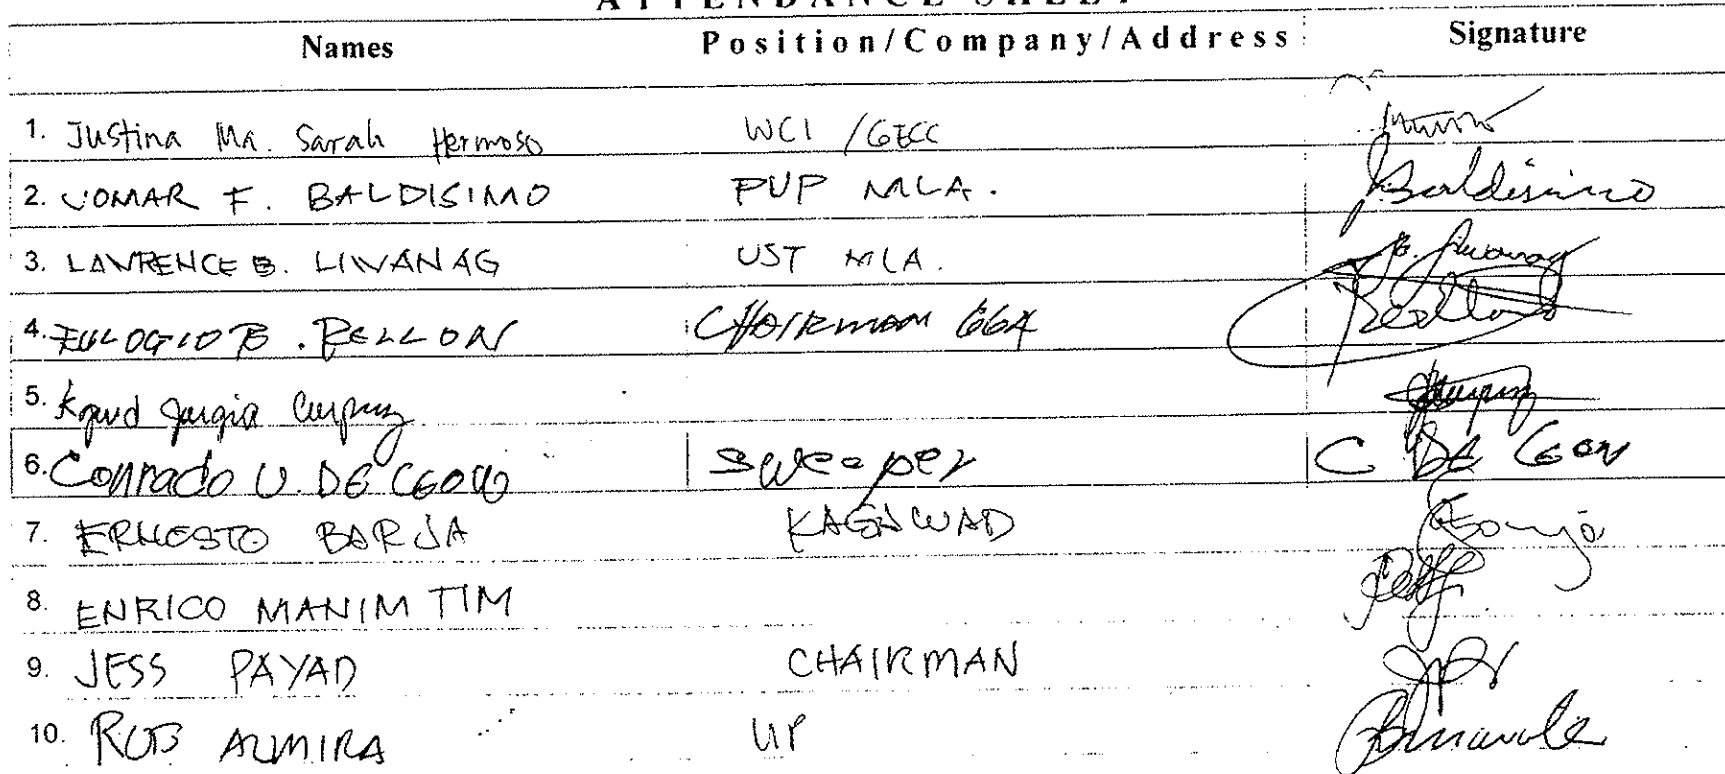 ATTENDANCE SHEET
Names Position/Company/Address Signature
1. Justina Ma. Sarah Hermoso WCI /GECC
2. JOMAR F. BALDISIMO PUP MLA. Baldisimo
3. LAWRENCE B. LIWANAG UST MLA. B. Liwanag
4. EULOGIO B. BELLON CHAIRMAN 664
5.
6. Conrado U. DE LEON sweeper C DE LEON
7. ERNESTO BARJA KAGAWAD
8. ENRICO MANIMTIM
9. JESS PAYAD CHAIRMAN
10. ROB ALMIRA UP